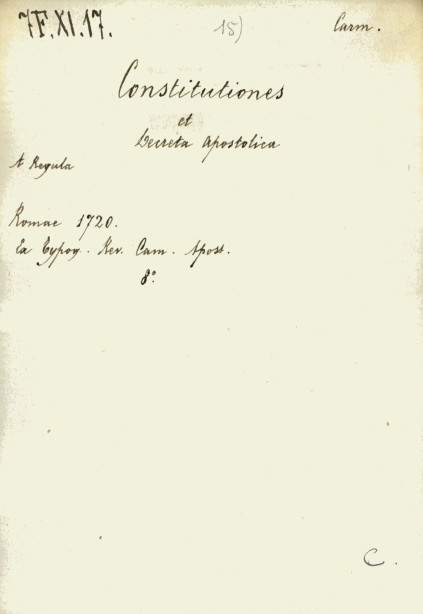 7F.XI.17. 15) Carm.
Constitutiones
et
Decreta Apostolica
A Regula
Romae 1720.
Ex Typog. Rev. Cam. Apost.
8°.
C.